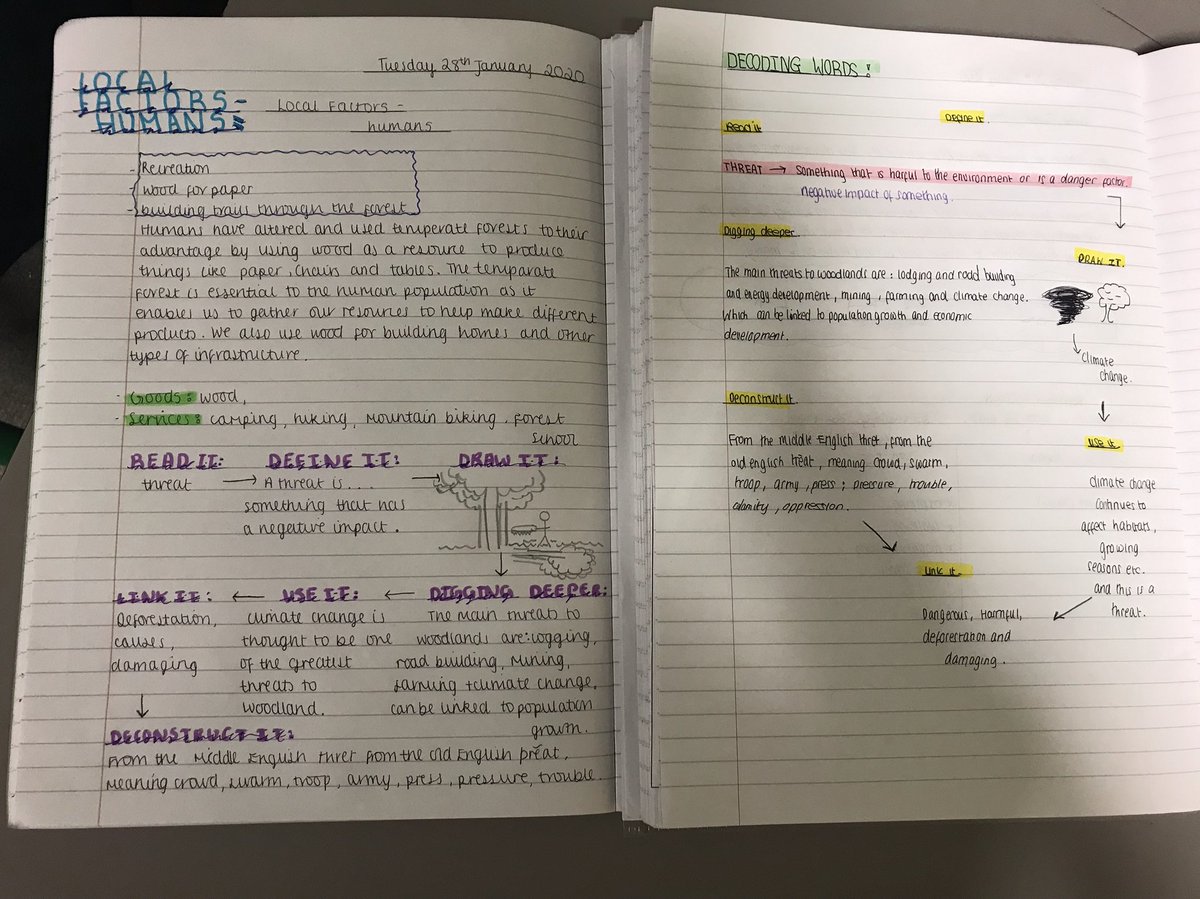 Tuesday 28th January 2020
LOCAL
FACTORS-
HUMANS:
Local Factors -
humans
- Recreation
- wood for paper
- building trails through the forest
Humans have altered and used temperate forests to their
advantage by using wood as a resource to produce
things like paper, chairs and tables. The temparate
forest is essential to the human population as it
enables us to gather our resources to help make different
products. We also use wood for building homes and other
types of infrastructure.
Goods: wood,
Services: camping, hiking, mountain biking, forest
school
READ IT: DEFINE IT: DRAW IT:
threat → A threat is.... →
something that has
a negative impact.
LINK IT: ← USE IT: ← DIGGING DEEPER:
Deforestation, climate change is The main threats to
causes, thought to be one woodlands are: logging,
damaging of the greatest road building, mining,
threats to farming + climate change.
woodland. can be linked to population
growth.
DECONSTRUCT IT:
From the Middle English thret from the Old English
meaning crowd, swarm, troop, army, press, pressure, trouble.
DECODING WORDS:
Define it.
Read it
THREAT → Something that is harful to the environment or is a danger factor.
negative impact of something.
Digging deeper.
DRAW IT.
The main threats to woodlands are: lodging and road building
and energy development, mining, farming and climate change.
Which can be linked to population growth and economic
development.
climate
change.
Deconstruct it.
use it
From the middle English thret, from the
old english treat, meaning crowd, swarm,
troop, army, press; pressure, trouble,
calamity, oppression.
climate change
continues to
affect habitats,
growing
seasons etc.
and this is a
threat.
Link it.
Dangerous, Harmful,
deforestation and
damaging.